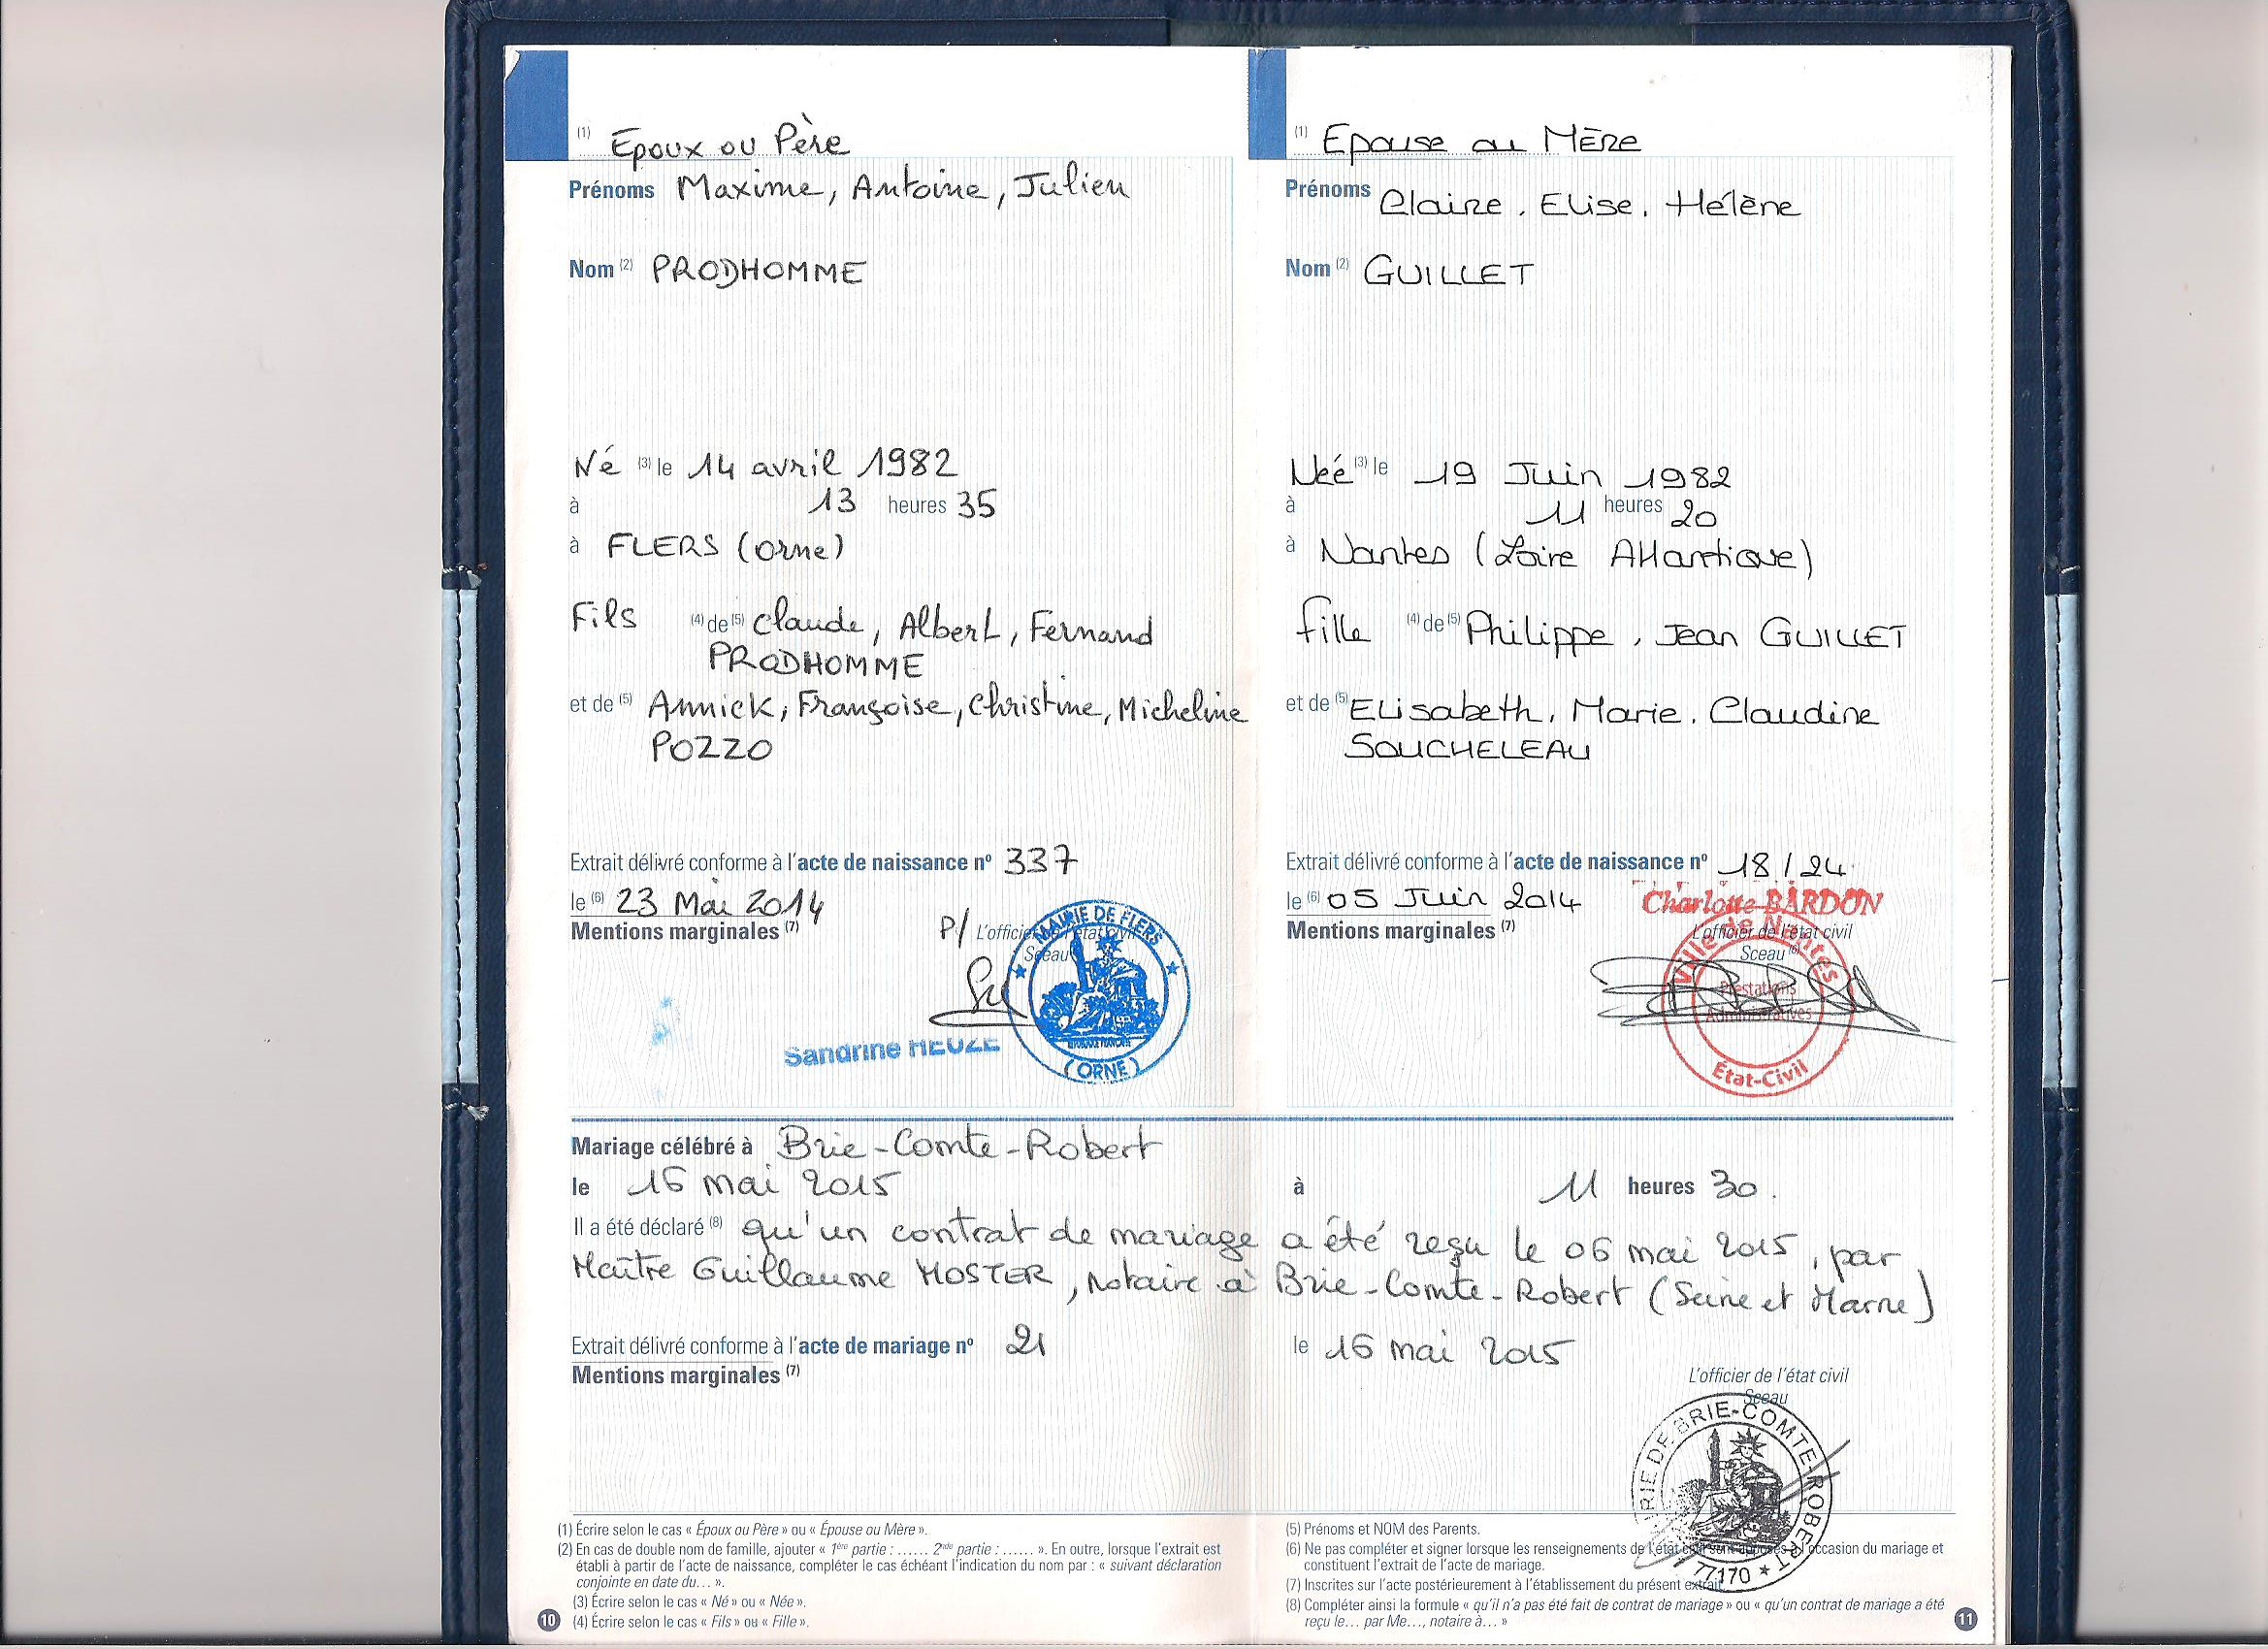 (1) Epoux ou Père
Prénoms Maxime, Antoine, Julien
Nom (2) PRODHOMME
Né (3) le 14 avril 1982
à 13 heures 35
à FLERS (Orne)
Fils (4) de (5) Claude, Albert, Fernand
PRODHOMME
et de (5) Annick, Françoise, Christine, Micheline
POZZO
Extrait délivré conforme à l'acte de naissance nº 337
le (6) 23 Mai 2014
Mentions marginales (7)
P/ L'officier de l'état civil
Sceau
MAIRIE DE FLERS
RÉPUBLIQUE FRANÇAISE
(ORNE)
Sandrine HEUZE
(1) Epouse ou Mère
Prénoms Claire, Elise, Hélène
Nom (2) GUILLET
Neé (3) le 19 Juin 1982
à 11 heures 20
à Nantes (Loire Atlantique)
fille (4) de (5) Philippe, Jean GUILLET
et de (5) Elisabeth, Marie, Claudine
SOUCHELEAU
Extrait délivré conforme à l'acte de naissance nº 18/24
le (6) 05 Juin 2014
Charlotte BARDON
Mentions marginales (7)
L'officier de l'état civil
Sceau (6)
Ville de Nantes
Prestations
Administratives
État-Civil
Mariage célébré à Brie-Comte-Robert
le 16 mai 2015 à 11 heures 30.
Il a été déclaré (8) qu'un contrat de mariage a été reçu le 06 mai 2015, par
Maître Guillaume HOSTER, notaire à Brie-Comte-Robert (Seine et Marne)
Extrait délivré conforme à l'acte de mariage nº 21 le 16 mai 2015
Mentions marginales (7)
L'officier de l'état civil
Sceau
MAIRIE DE BRIE-COMTE-ROBERT
77170
(1) Écrire selon le cas « Époux ou Père » ou « Épouse ou Mère ».
(2) En cas de double nom de famille, ajouter « 1ère partie : ...... 2nde partie : ...... ». En outre, lorsque l'extrait est
établi à partir de l'acte de naissance, compléter le cas échéant l'indication du nom par : « suivant déclaration
conjointe en date du... ».
(3) Écrire selon le cas « Né » ou « Née ».
(4) Écrire selon le cas « Fils » ou « Fille ».
10
(5) Prénoms et NOM des Parents.
(6) Ne pas compléter et signer lorsque les renseignements de l'état civil sont apposés à l'occasion du mariage et
constituent l'extrait de l'acte de mariage.
(7) Inscrites sur l'acte postérieurement à l'établissement du présent extrait.
(8) Compléter ainsi la formule « qu'il n'a pas été fait de contrat de mariage » ou « qu'un contrat de mariage a été
reçu le... par Me..., notaire à... »
11